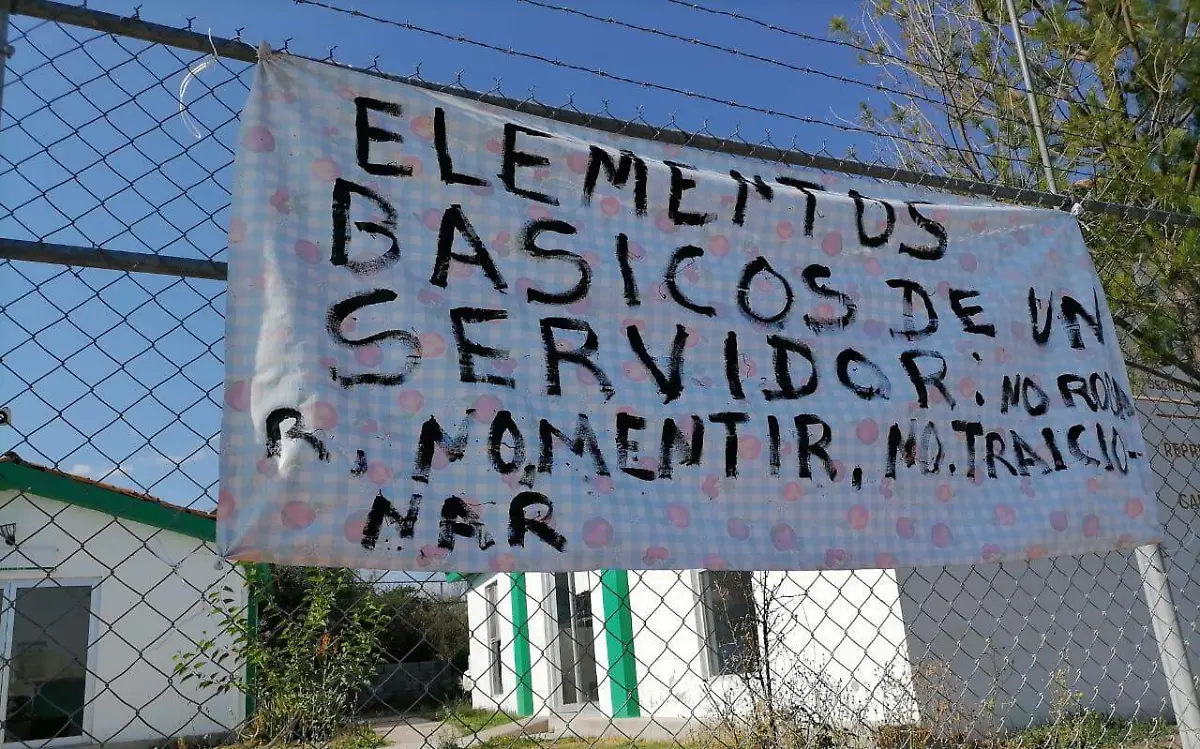 ELEMENTOS
BASICOS DE UN
SERVIDOR: NO ROBA
R, NO, MENTIR, NO. TRAICIO-
NAR